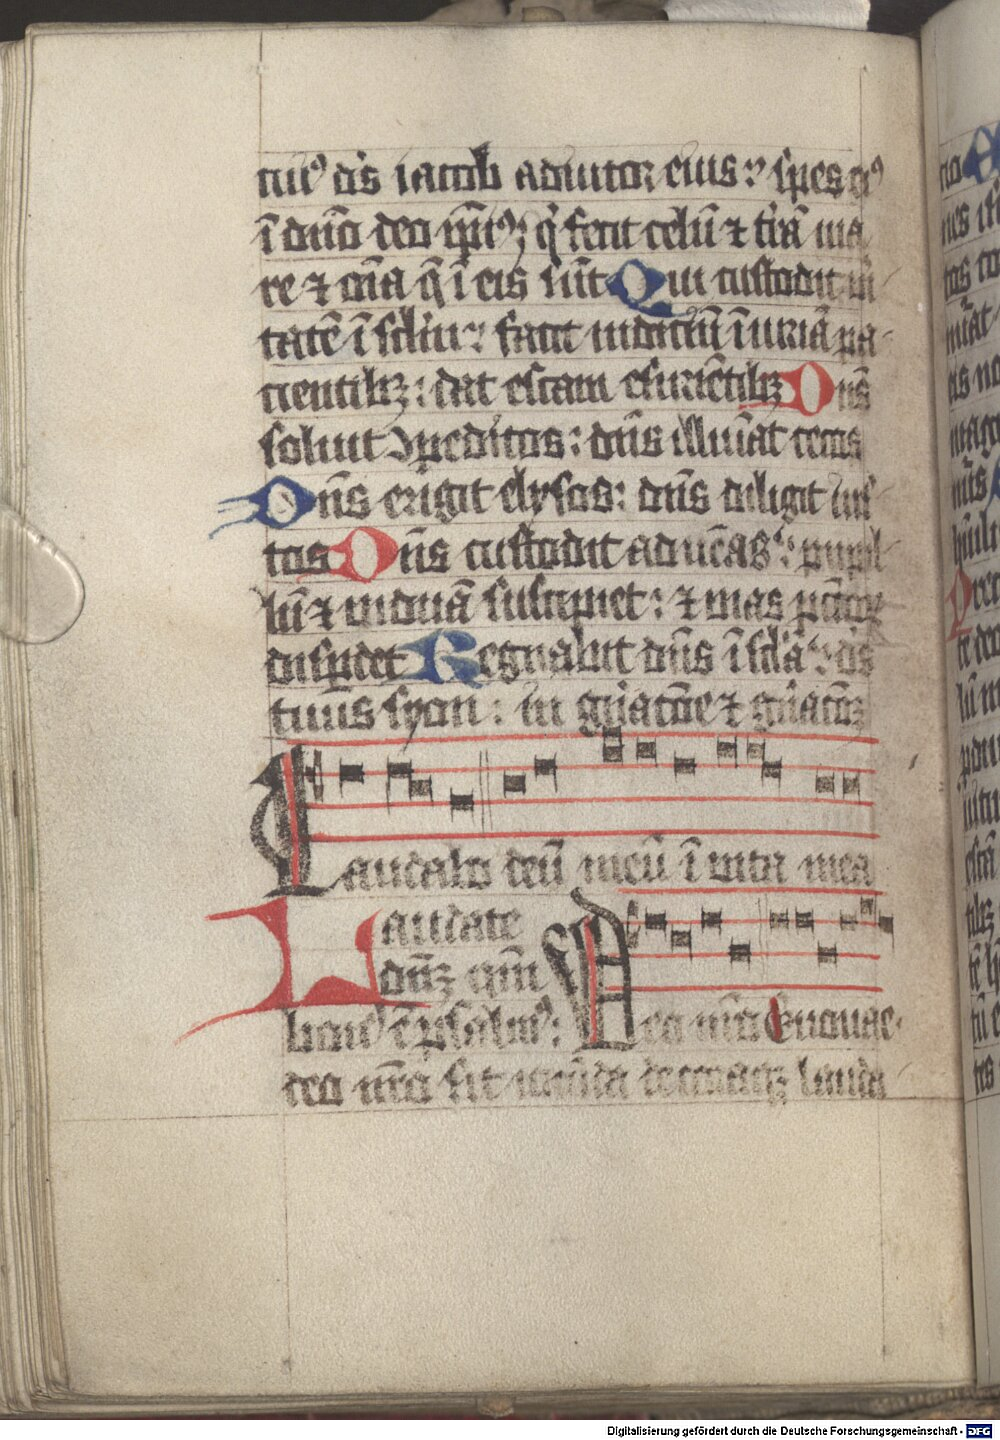 cui⁹ dſ iacob adiutor eius : ſpes ei⁹
ī dn̄o deo ipſi⁹ : q̇ fecit celū ⁊ t̄rā ma
re ⁊ om̄ia q̄ ī eis ſūt Qui cuſtodit v̄i
tatē ī ſcl̄m : facit iudiciū īiuriā pa
cientibꝫ : dat eſcam eſuriētibꝫ Dn̄s
ſoluit ꝯpeditos : dn̄s illuīat cecos
Dn̄s erigit elyſos : dn̄s diligit iuſ
tos Dn̄s cuſtodit aduēas : pupil
lū ⁊ viduā ſuſcipiet : ⁊ vias pctōꝝ
diſp̄det Regnabit dn̄s ī ſcl̄a : dſ
tuus ſyon : in gn̄atōe ⁊ gn̄atōꝫ
Laudabo deū meū ī vita mea
Laudate
dn̄ꝫ qm̄
bonꝰ ē pſalmꝰ : Deo nr̄o Euouae
deo nr̄o ſit iocūda decoraqꝫ lauda
Digitalisierung gefördert durch die Deutsche Forschungsgemeinschaft - DFG